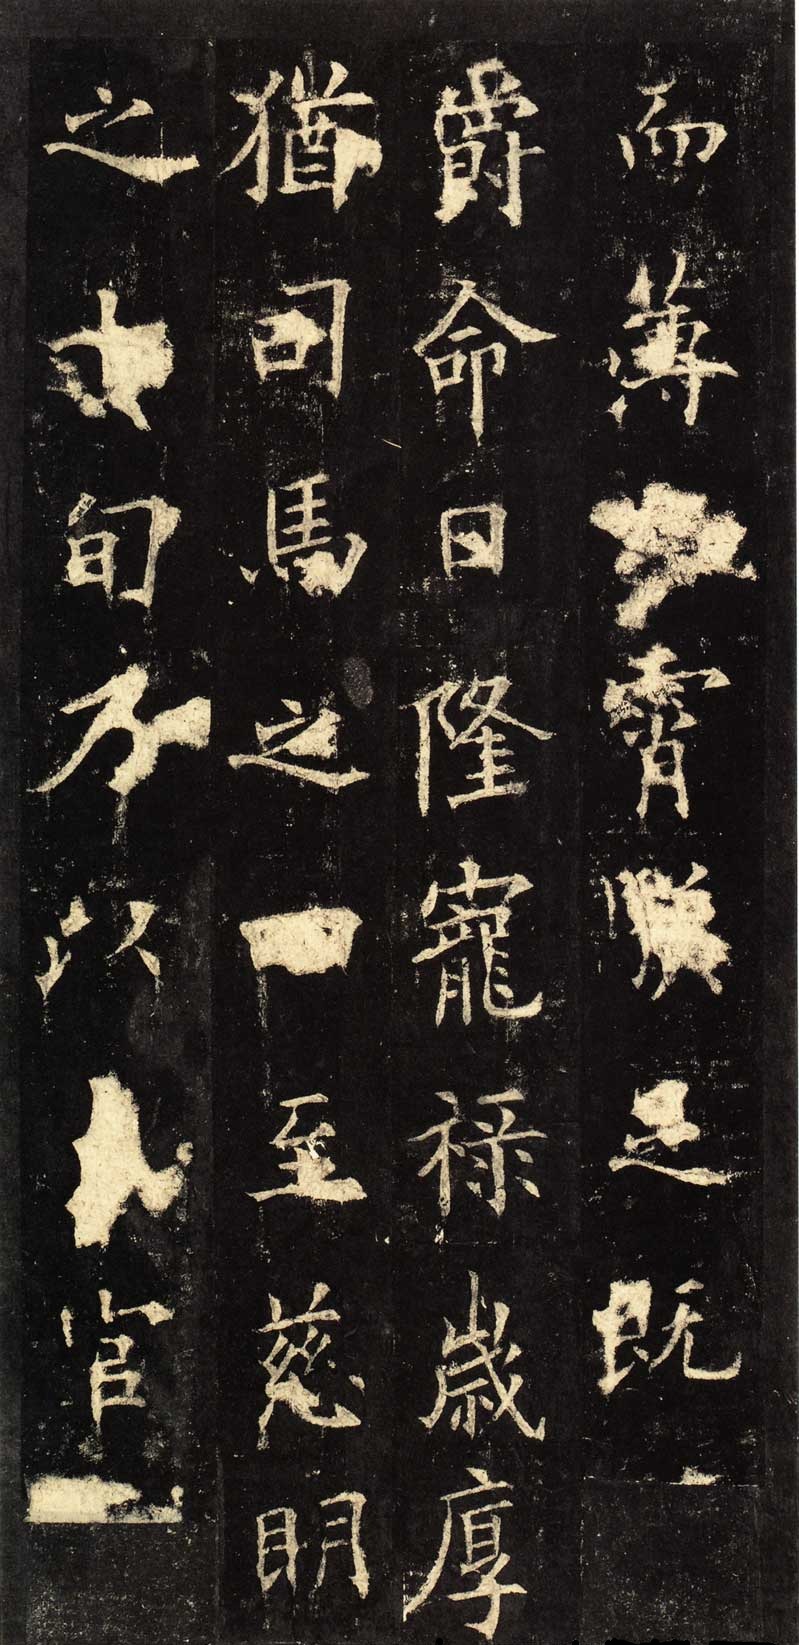 而薄霄臨之既
爵命日隆寵祿歲厚
猶司馬之一至慈明
之旬方以官